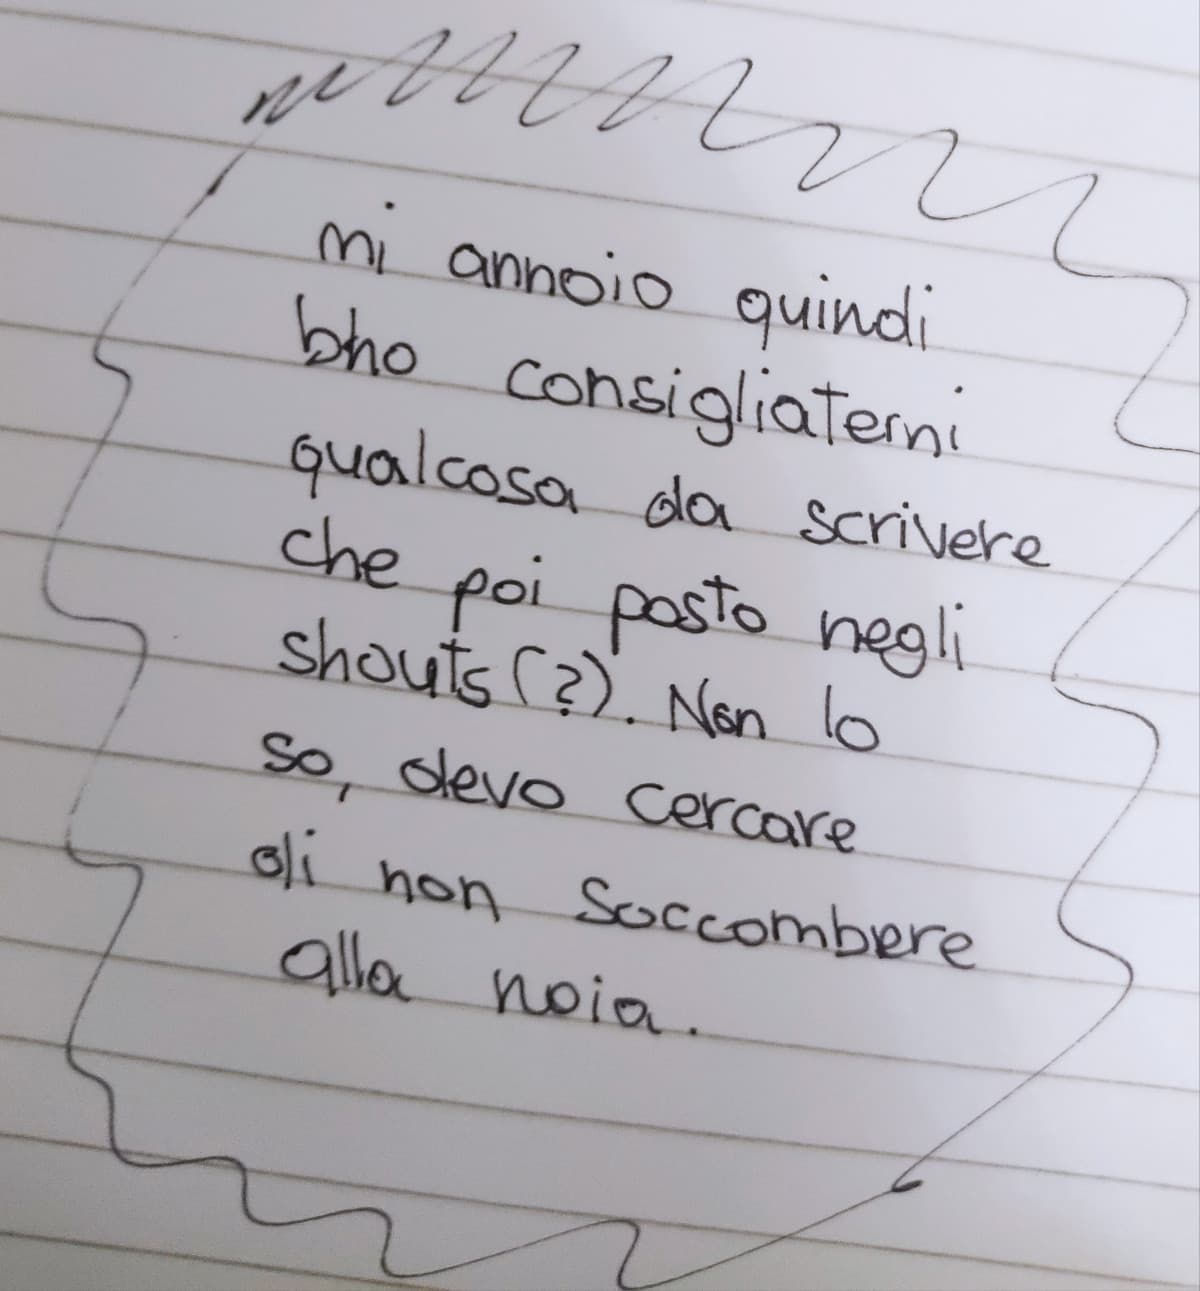 mi annoio quindi
bho consigliatemi
qualcosa da scrivere
che poi posto negli
shouts (?). Non lo
so, devo cercare
di non soccombere
alla noia.